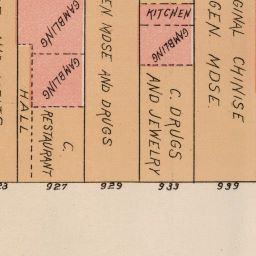 GAMBLING
GAMBLING
HALL
C.
RESTAURANT
GEN MDSE AND DRUGS
KITCHEN
GAMBLING
C. DRUGS
AND JEWELRY
GEN. MDSE.
CHINISE
927
929
933
939